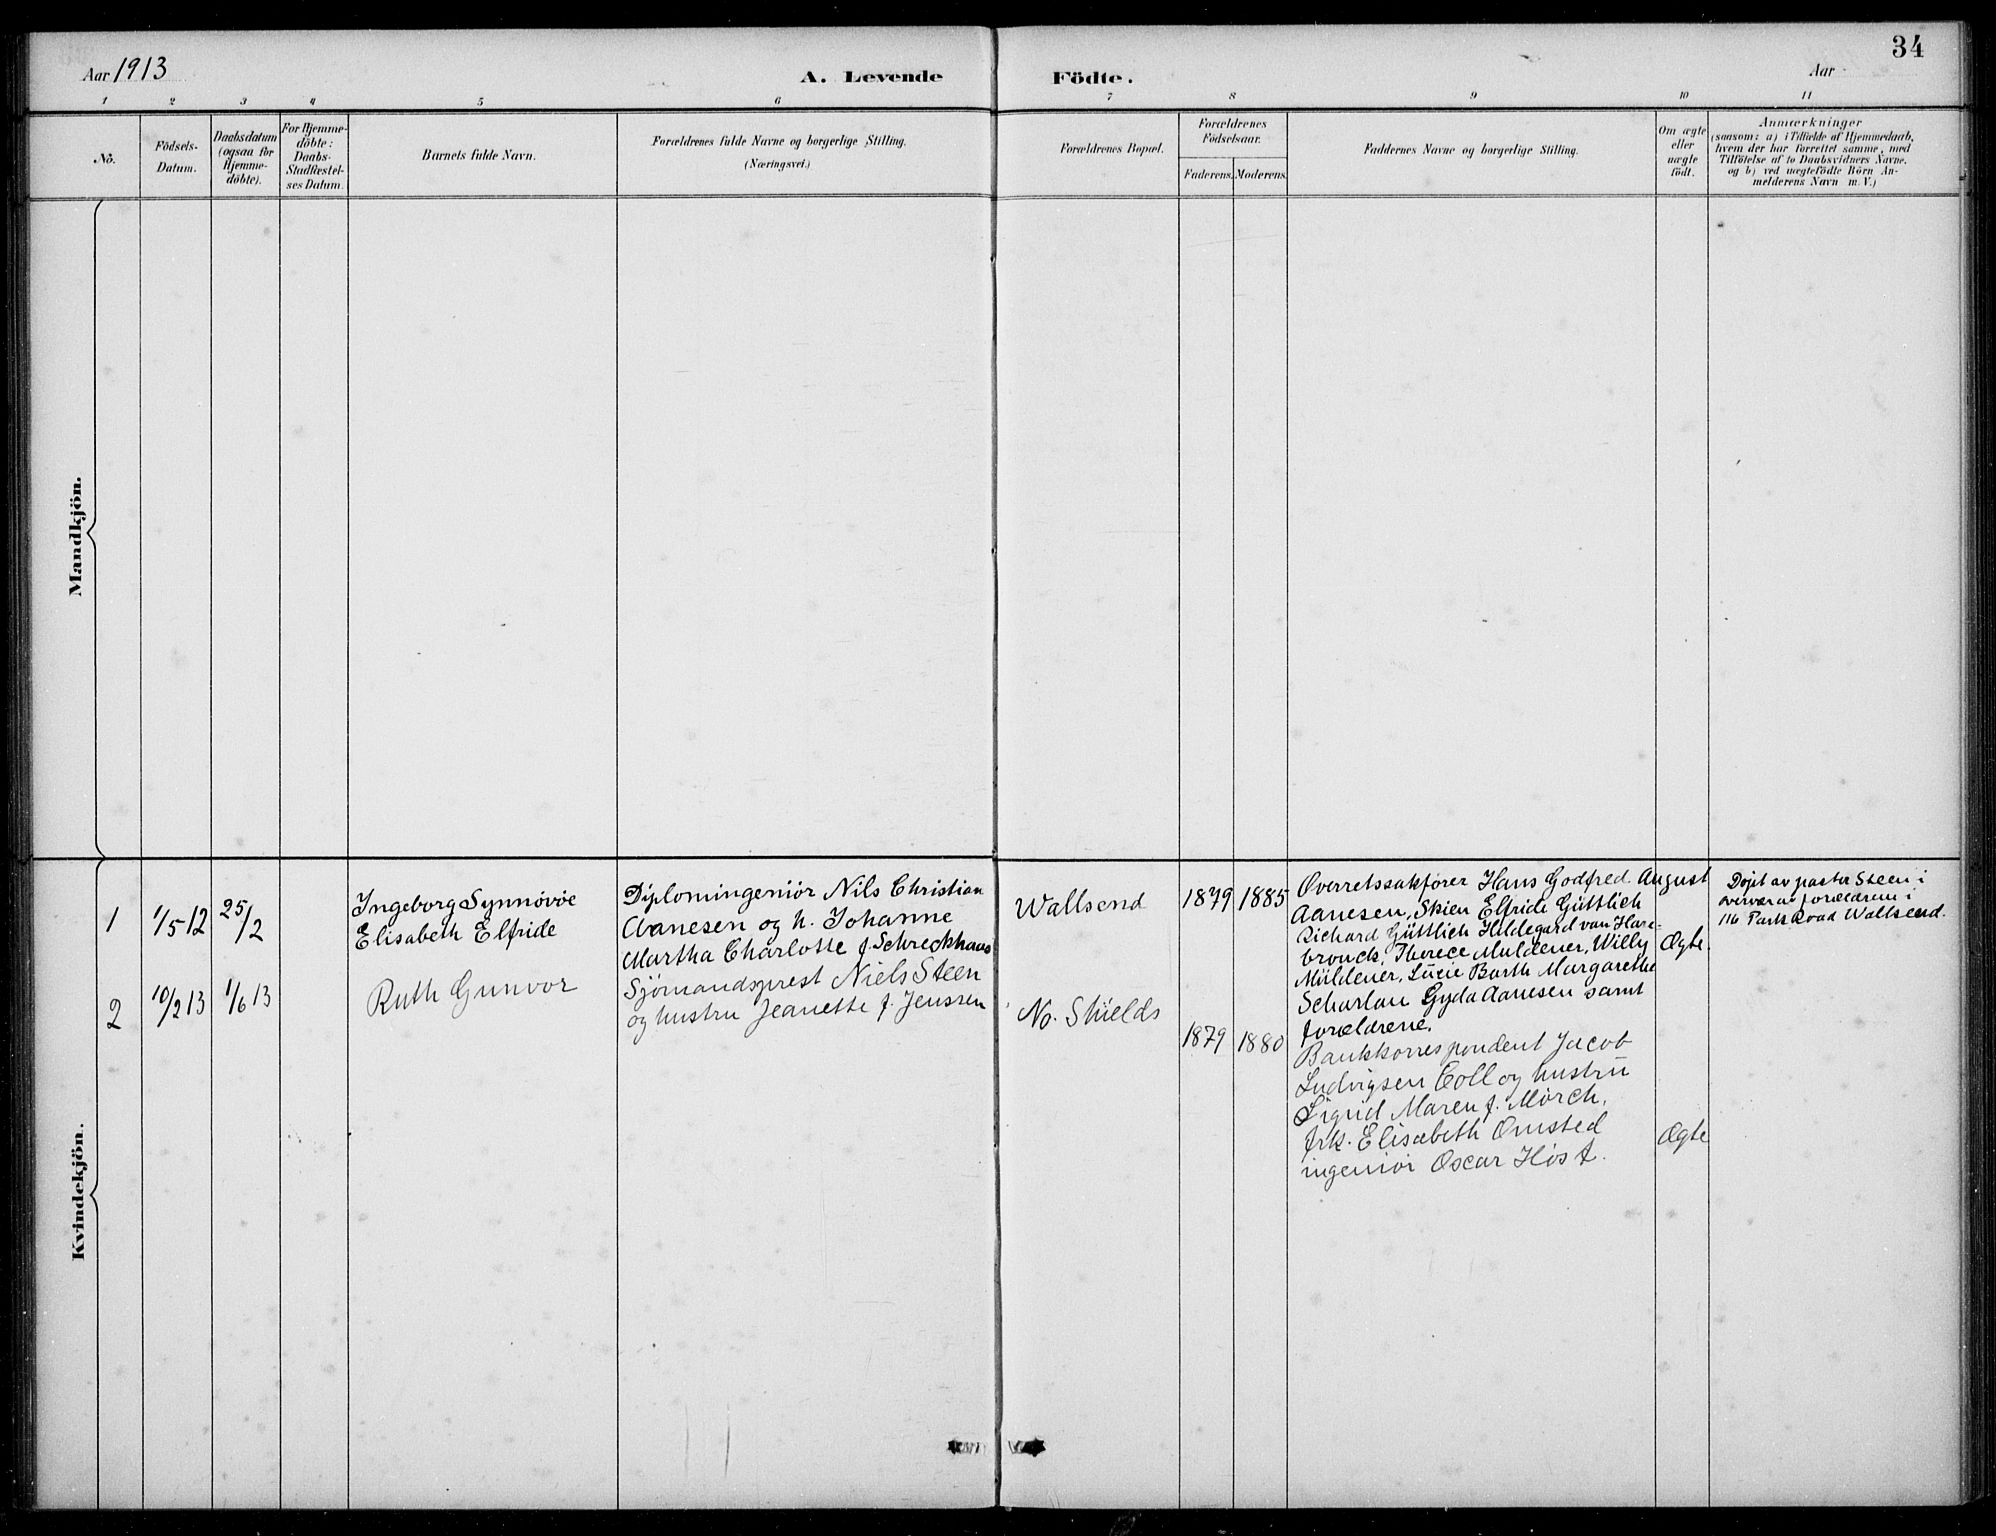 34
Aar 1913
A. Levende Födte.
Aar
1 2 3 4 5 6 7 8 9 10 11
No.
Födsels-
Datum.
Daabsdatum
(ogsaa for
Hjemme-
döbte).
For Hjemme-
döbte:
Daabs-
Stadfæstel-
ses Datum.
Barnets fulde Navn.
Forældrenes fulde Navne og borgerlige Stilling.
(Næringsvei.)
Forældrenes Bopæl.
Forældrenes
Födselsaar.
Faderens. Moderens.
Faddernes Navne og borgerlige Stilling.
Om ægte
eller
uægte
födt.
Anmærkninger
(saasom: a) i Tilfælde af Hjemmedaab,
hvem der har forrettet samme, med
Tilföielse af to Daabsvidners Navne,
og b) ved uægtefödte Börn An-
melderens Navn m. V.)
Mandkjön.
Kvindekjön.
1
1/5 12
25/2
Ingeborg Synnøve
Elisabeth Elfride
Diplomingeniør Nils Christian
Aanesen og h. Johanne
Martha Charlotte f. Schreckhaas
Wallsend
1879
1885
Overretssakfører Hans Godfred August
Aanesen, Skien Elfride Güttlich
Richard Güttlich Hildegard van Hase-
brouck, Therece Muldener, Willy
Müldener, Lücie Barth Margarethe
Scharlau Gyda Aanesen samt
forældrene.
Ægte
Døpt av pastor Steen i
overvær av forældrene i
116 Park Road Wallsend.
2
10/2 13
1/6 13
Ruth Gunvor
Sjømandsprest Niels Steen
og hustru Jeanette f. Jenssen
No. Shields
1879
1880
Bankkorrespondent Jacob
Ludvigsen Coll og hustru
Sigrid Maren f. Mörch,
frk. Elisabeth Omsted
ingeniør Oscar Høst.
Ægte